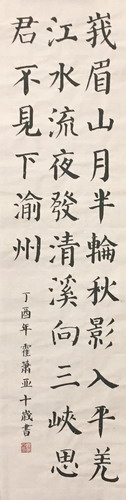 峩眉山月半輪秋影入平羌
江水流夜發清溪向三峽思
君不見下渝州
丁酉年 霍蕭亞十歲書